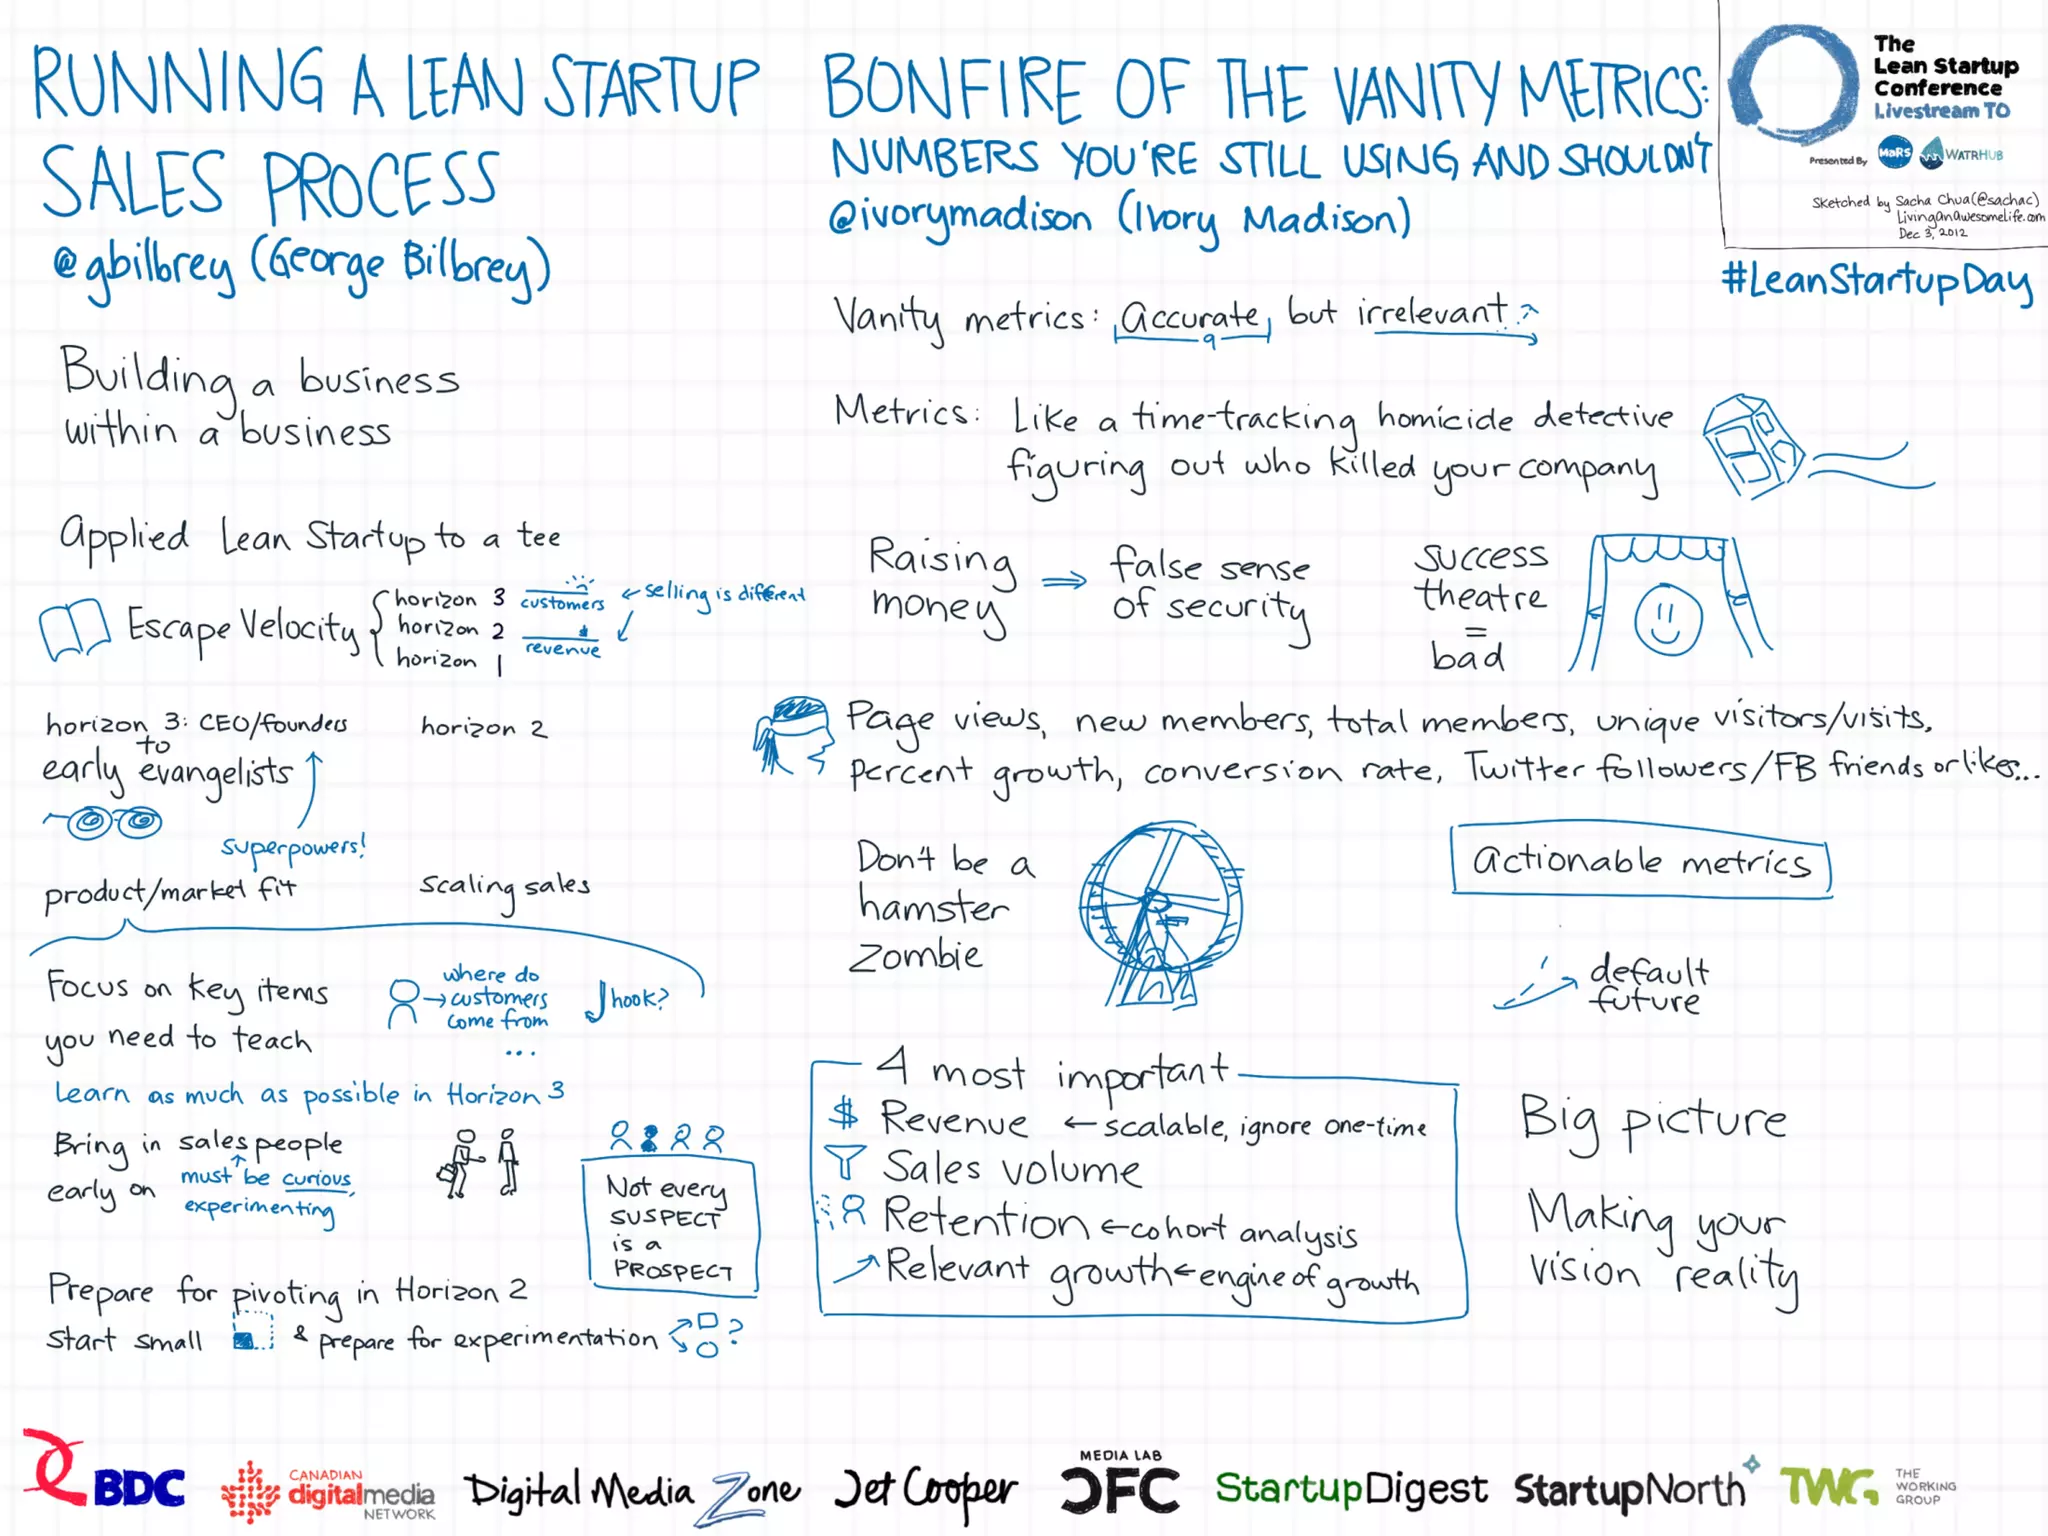 RUNNING A LEAN STARTUP
SALES PROCESS
@gbilbrey (George Bilbrey)
Building a business
within a business
Applied Lean Startup to a tee
Escape Velocity
horizon 3
horizon 2
horizon 1
customers
revenue
selling is different
horizon 3: CEO/founders
to
early evangelists
superpowers!
horizon 2
product/market fit
scaling sales
Focus on key items
you need to teach
where do
customers
come from
...
hook?
Learn as much as possible in Horizon 3
Bring in sales people
early on
must be curious,
experimenting
Not every
SUSPECT
is a
PROSPECT
Prepare for pivoting in Horizon 2
start small & prepare for experimentation ?
BONFIRE OF THE VANITY METRICS:
NUMBERS YOU'RE STILL USING AND SHOULDN'T
@ivorymadison (Ivory Madison)
Vanity metrics: Accurate but irrelevant
Metrics: Like a time-tracking homicide detective
figuring out who killed your company
Raising
money
⇒
false sense
of security
success
theatre
=
bad
Page views, new members, total members, unique visitors/visits,
percent growth, conversion rate, Twitter followers/FB friends or likes...
Don't be a
hamster
zombie
actionable metrics
default
future
4 most important
$ Revenue ← scalable, ignore one-time
Sales volume
Retention ← cohort analysis
Relevant growth ← engine of growth
Big picture
Making your
vision reality
The
Lean Startup
Conference
Livestream TO
Presented By MaRS WATRHUB
Sketched by Sacha Chua (@sachac)
LivingAnAwesomeLife.com
Dec 3, 2012
#LeanStartupDay
BDC
CANADIAN
digitalmedia
NETWORK
Digital Media Zone
Jet Cooper
MEDIA LAB
CFC
StartupDigest
StartupNorth
TWG
THE
WORKING
GROUP